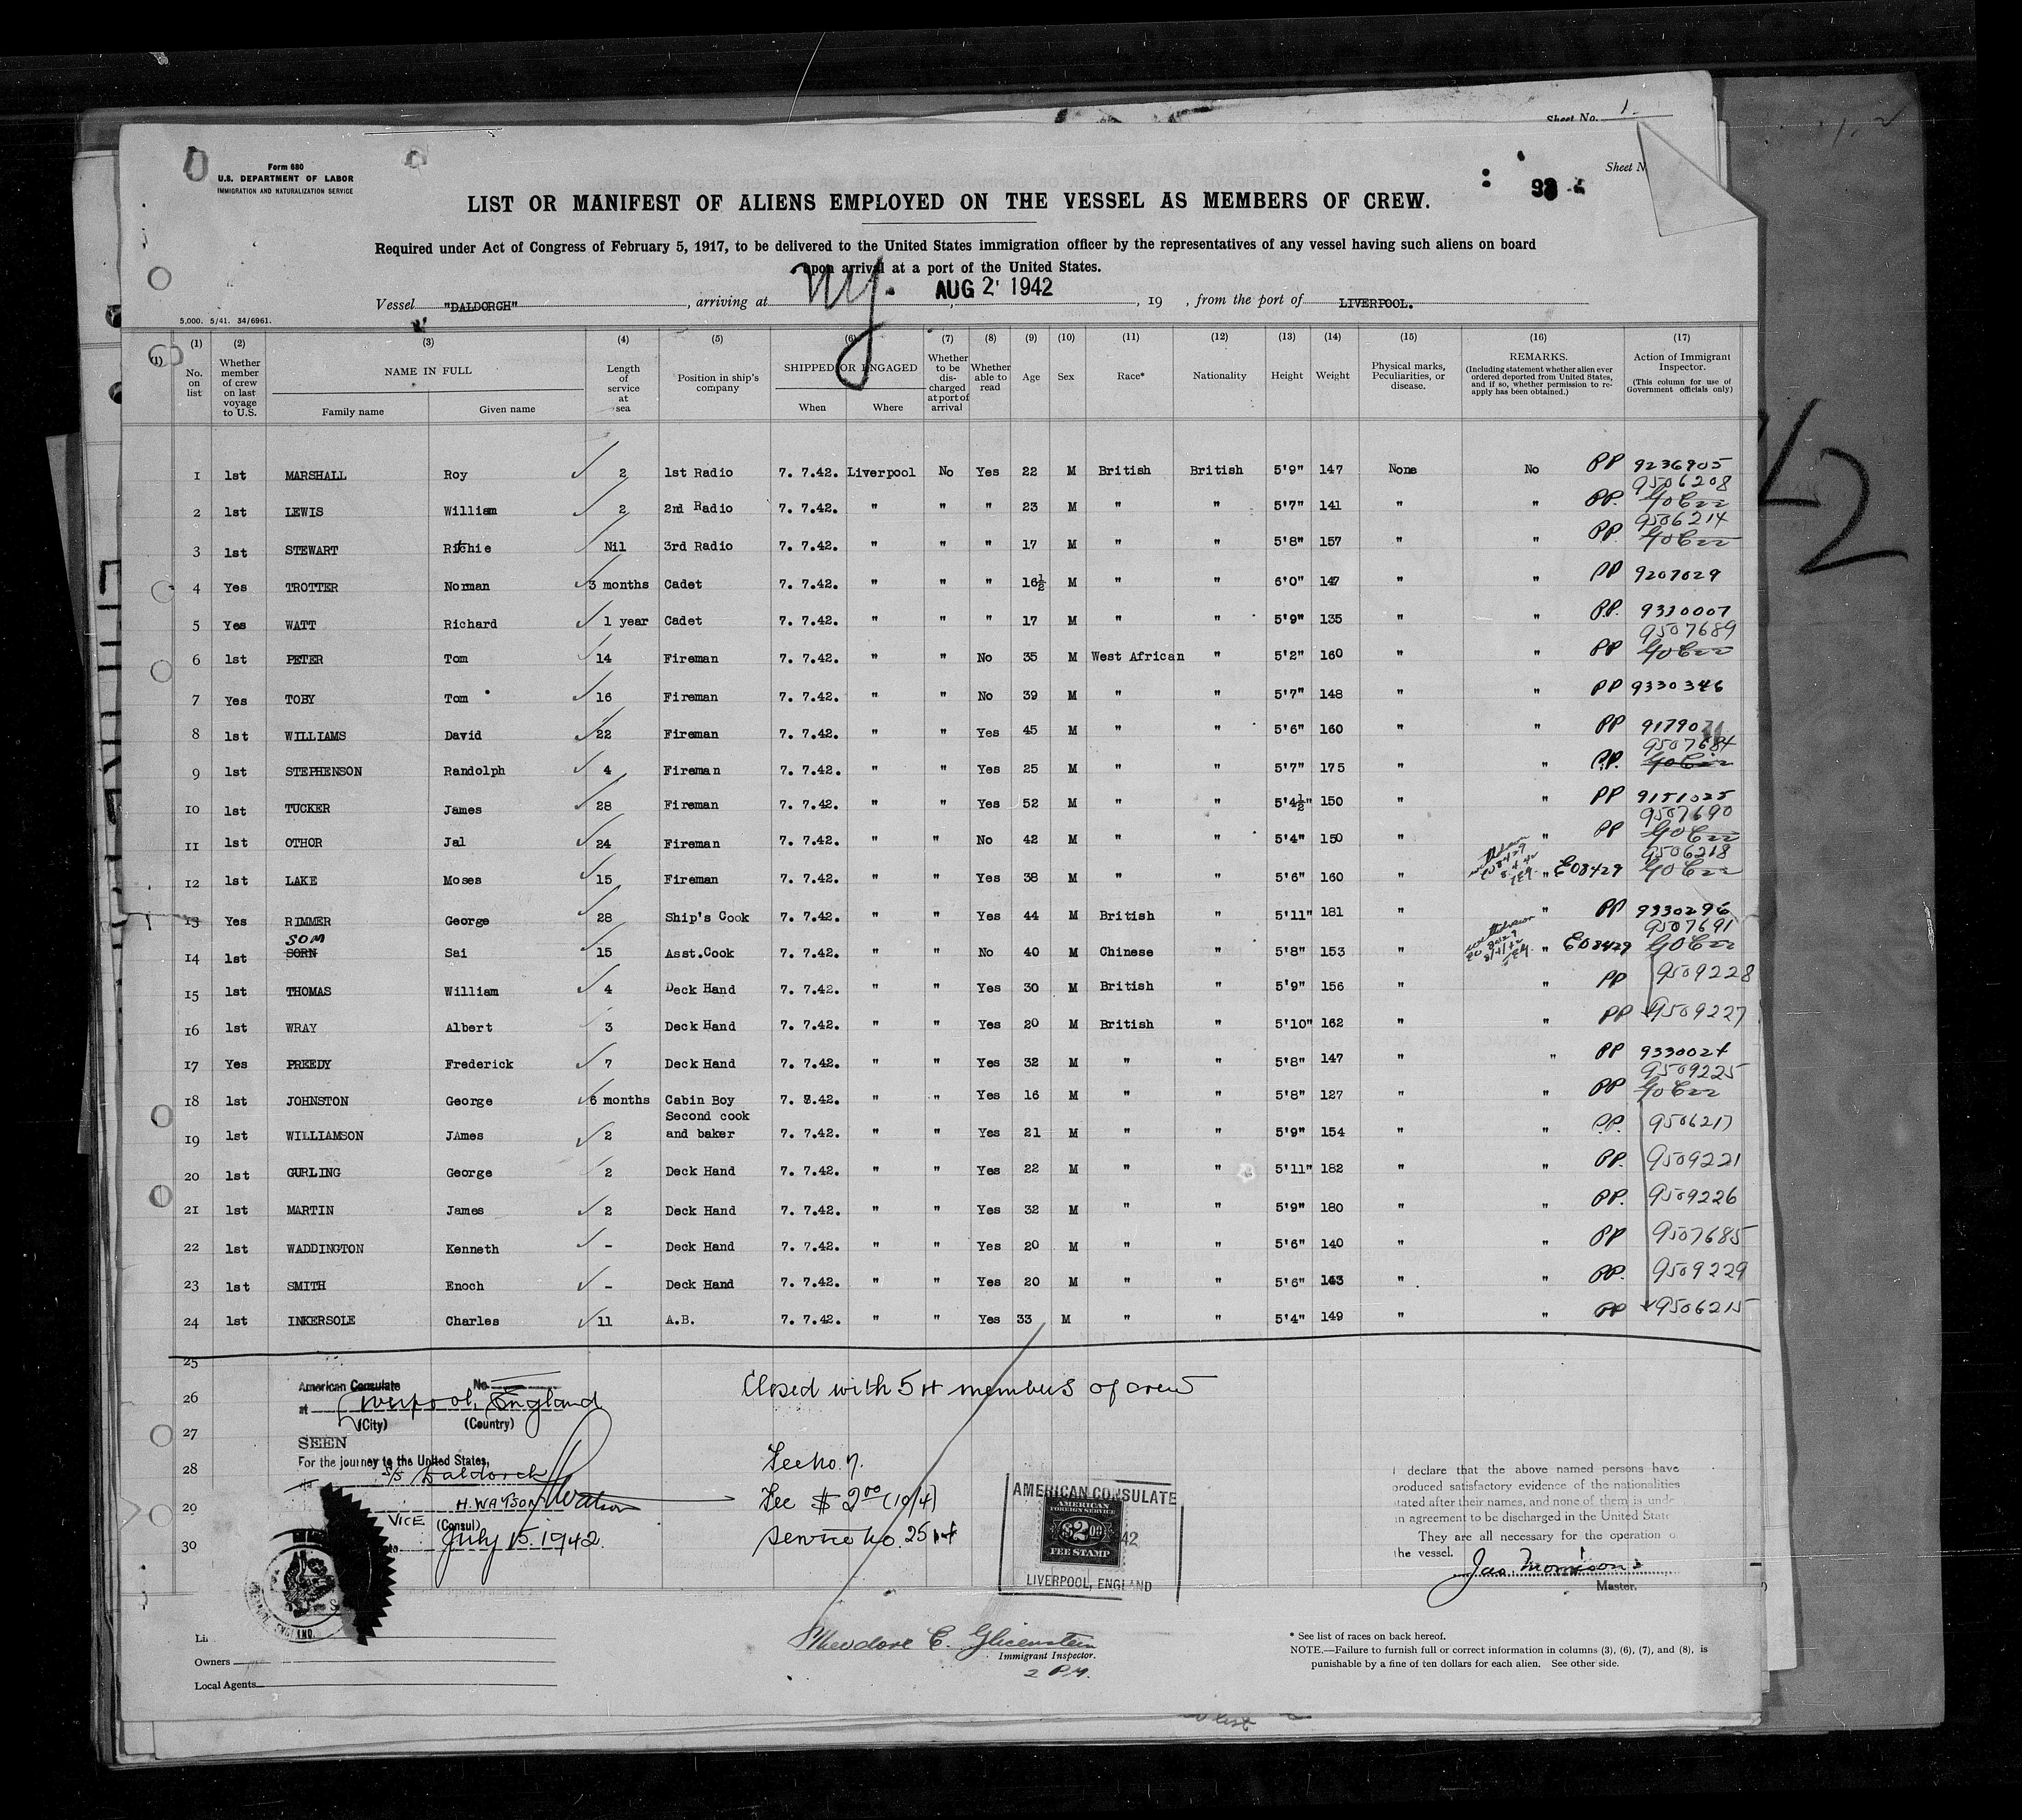 Sheet No. 1.
Form 680
U.S. DEPARTMENT OF LABOR
IMMIGRATION AND NATURALIZATION SERVICE
Sheet N
LIST OR MANIFEST OF ALIENS EMPLOYED ON THE VESSEL AS MEMBERS OF CREW.
Required under Act of Congress of February 5, 1917, to be delivered to the United States immigration officer by the representatives of any vessel having such aliens on board
upon arrival at a port of the United States.
Vessel "DALDORCH", arriving at Ny. AUG 2' 1942, 19 , from the port of LIVERPOOL.
5,000. 5/41. 34/6961.
(1) (2) (3) (4) (5) (6) (7) (8) (9) (10) (11) (12) (13) (14) (15) (16) (17)
No. on list Whether member of crew on last voyage to U.S. NAME IN FULL Family name Given name Length of service at sea Position in ship's company SHIPPED OR ENGAGED When Where Whether to be discharged at port of arrival Whether able to read Age Sex Race* Nationality Height Weight Physical marks, Peculiarities, or disease. REMARKS. (Including statement whether alien ever ordered deported from United States, and if so, whether permission to re-apply has been obtained.) Action of Immigrant Inspector. (This column for use of Government officials only)
1 1st MARSHALL Roy 2 1st Radio 7. 7.42. Liverpool No Yes 22 M British British 5'9" 147 None No PP 9236905
2 1st LEWIS William 2 2nd Radio 7. 7.42. " " " 23 M " " 5'7" 141 " " PP. 9506208
3 1st STEWART Ritchie Nil 3rd Radio 7. 7.42. " " " 17 M " " 5'8" 157 " " PP 9506214
4 Yes TROTTER Norman 3 months Cadet 7. 7.42. " " " 16½ M " " 6'0" 147 " " PP 9207029
5 Yes WATT Richard 1 year Cadet 7. 7.42. " " " 17 M " " 5'9" 135 " " PP. 9310007
6 1st PETER Tom 14 Fireman 7. 7.42. " " No 35 M West African " 5'2" 160 " " PP 9507689
7 Yes TOBY Tom 16 Fireman 7. 7.42. " " No 39 M " " 5'7" 148 " " PP 9330346
8 1st WILLIAMS David 22 Fireman 7. 7.42. " " Yes 45 M " " 5'6" 160 " " PP
9 1st STEPHENSON Randolph 4 Fireman 7. 7.42. " " Yes 25 M " " 5'7" 175 " " PP. 9507684
10 1st TUCKER James 28 Fireman 7. 7.42. " " Yes 52 M " " 5'4½" 150 " " PP 9151025
11 1st OTHOR Jal 24 Fireman 7. 7.42. " " No 42 M " " 5'4" 150 " " PP 9507690
12 1st LAKE Moses 15 Fireman 7. 7.42. " " Yes 38 M " " 5'6" 160 " " E08429 9506218
13 Yes RIMMER George 28 Ship's Cook 7. 7.42. " " Yes 44 M British " 5'11" 181 " " PP 9330296
SOM
14 1st SORN Sai 15 Asst.Cook 7. 7.42. " " No 40 M Chinese " 5'8" 153 " " E08429 9507691
15 1st THOMAS William 4 Deck Hand 7. 7.42. " " Yes 30 M British " 5'9" 156 " " PP 9509228
16 1st WRAY Albert 3 Deck Hand 7. 7.42. " " Yes 20 M British " 5'10" 162 " " PP 9509227
17 Yes PREEDY Frederick 7 Deck Hand 7. 7.42. " " Yes 32 M " " 5'8" 147 " " PP 9330024
18 1st JOHNSTON George 6 months Cabin Boy 7. 7.42. " " Yes 16 M " " 5'8" 127 " " PP 9509225
Second cook
19 1st WILLIAMSON JAmes 2 and baker 7. 7.42. " " Yes 21 M " " 5'9" 154 " " P.P. 9506217
20 1st GURLING George 2 Deck Hand 7. 7.42. " " Yes 22 M " " 5'11" 182 " " PP. 9509221
21 1st MARTIN James 2 Deck Hand 7. 7.42. " " Yes 32 M " " 5'9" 180 " " PP. 9509226
22 1st WADDINGTON Kenneth - Deck Hand 7. 7.42. " " Yes 20 M " " 5'6" 140 " " PP 9507685
23 1st SMITH Enoch - Deck Hand 7. 7.42. " " Yes 20 M " " 5'6" 143 " " PP. 9509229
24 1st INKERSOLE Charles 11 A.B. 7. 7.42. " " Yes 33 M " " 5'4" 149 " " PP 9506215
25
26
27
28
29
30
American Consulate No.
at Liverpool, England
(City) (Country)
SEEN
For the journey to the United States,
S/S Daldorch
H. WATSON
VICE (Consul)
July 15. 1942.
Closed with 54 members of crew
Fee No. 7.
Fee $ 2.00 (10/4)
Service No. 2514
AMERICAN CONSULATE
AMERICAN
FOREIGN SERVICE
$2.00
FEE STAMP
42
LIVERPOOL, ENGLAND
I declare that the above named persons have
produced satisfactory evidence of the nationalities
stated after their names, and none of them is unde
an agreement to be discharged in the United State
They are all necessary for the operation o
the vessel.
Jas. Morrison
Master.
Theodore C. Glicenstein
Immigrant Inspector.
2 P.M.
Li
Owners
Local Agents
* See list of races on back hereof.
NOTE.—Failure to furnish full or correct information in columns (3), (6), (7), and (8), is
punishable by a fine of ten dollars for each alien. See other side.